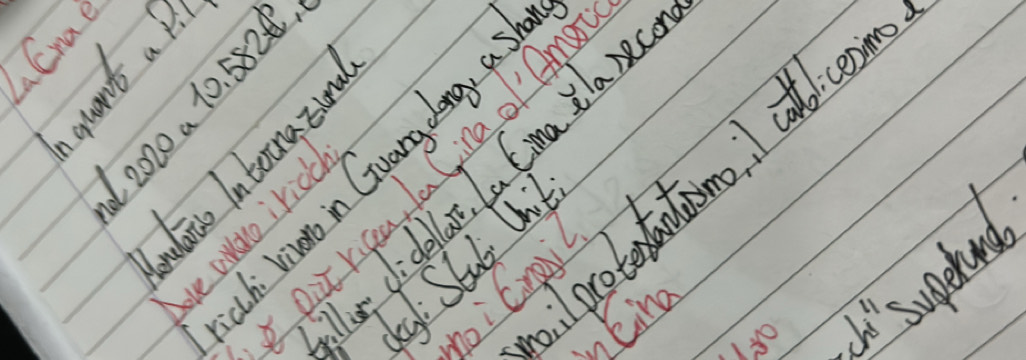 La Cina è
In quanto a P.I.
nel 2020 a 10.582€,
Monetario Internazionale
Dove vivono i ricchi
I ricchi vivono in Guangdong, a Shang
è più ricca, la Cina o l'America
trillioni di dollari, la Cina è la seconda
degli Stati Uniti.
i Cinesi?
il protestantesimo, il cattolicesimo e
in Cina
superando